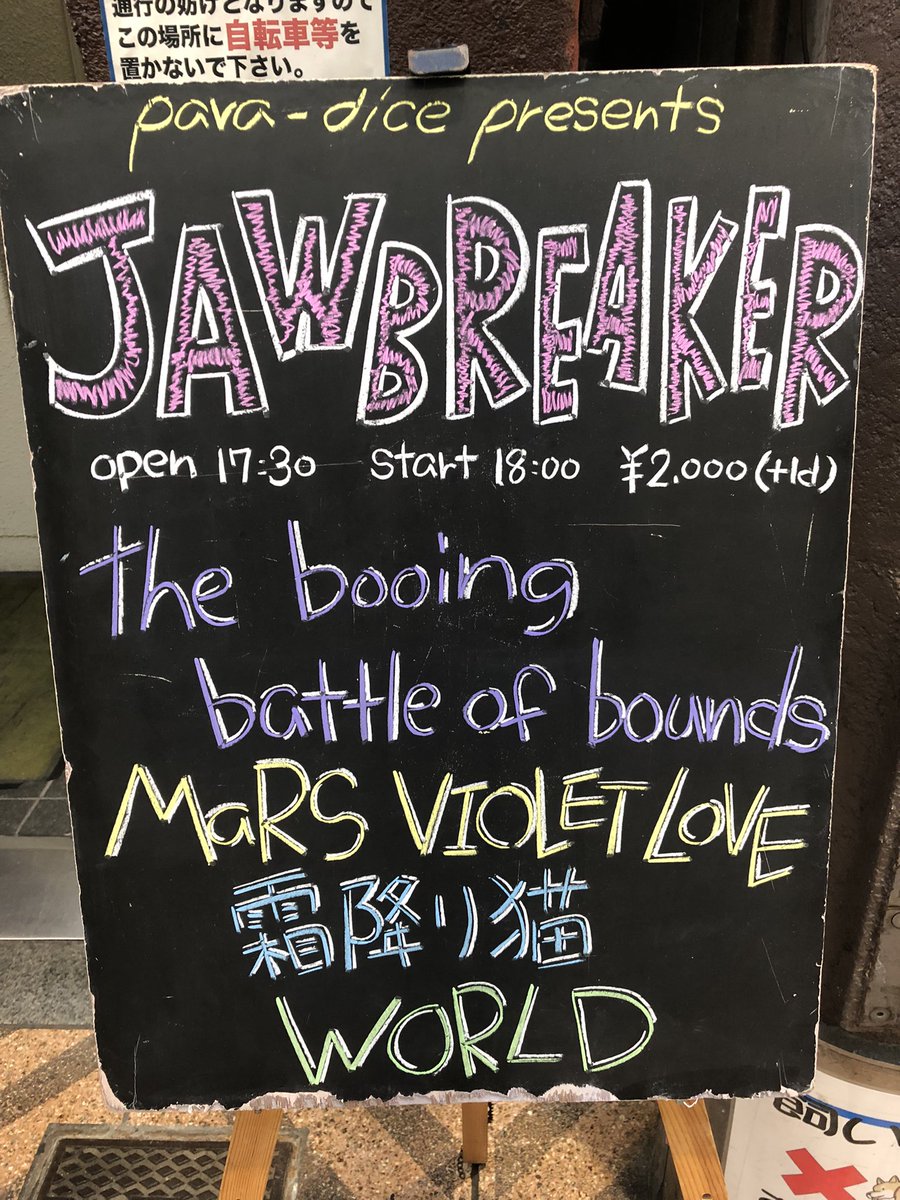 通行の妨げとなりますので
この場所に自転車等を
置かないで下さい。
para-dice presents
JAWBREAKER
open 17:30 start 18:00 ¥2.000(+1d)
the booing
battle of bounds
MaRS VIOLET LOVE
霜降り猫
WORLD